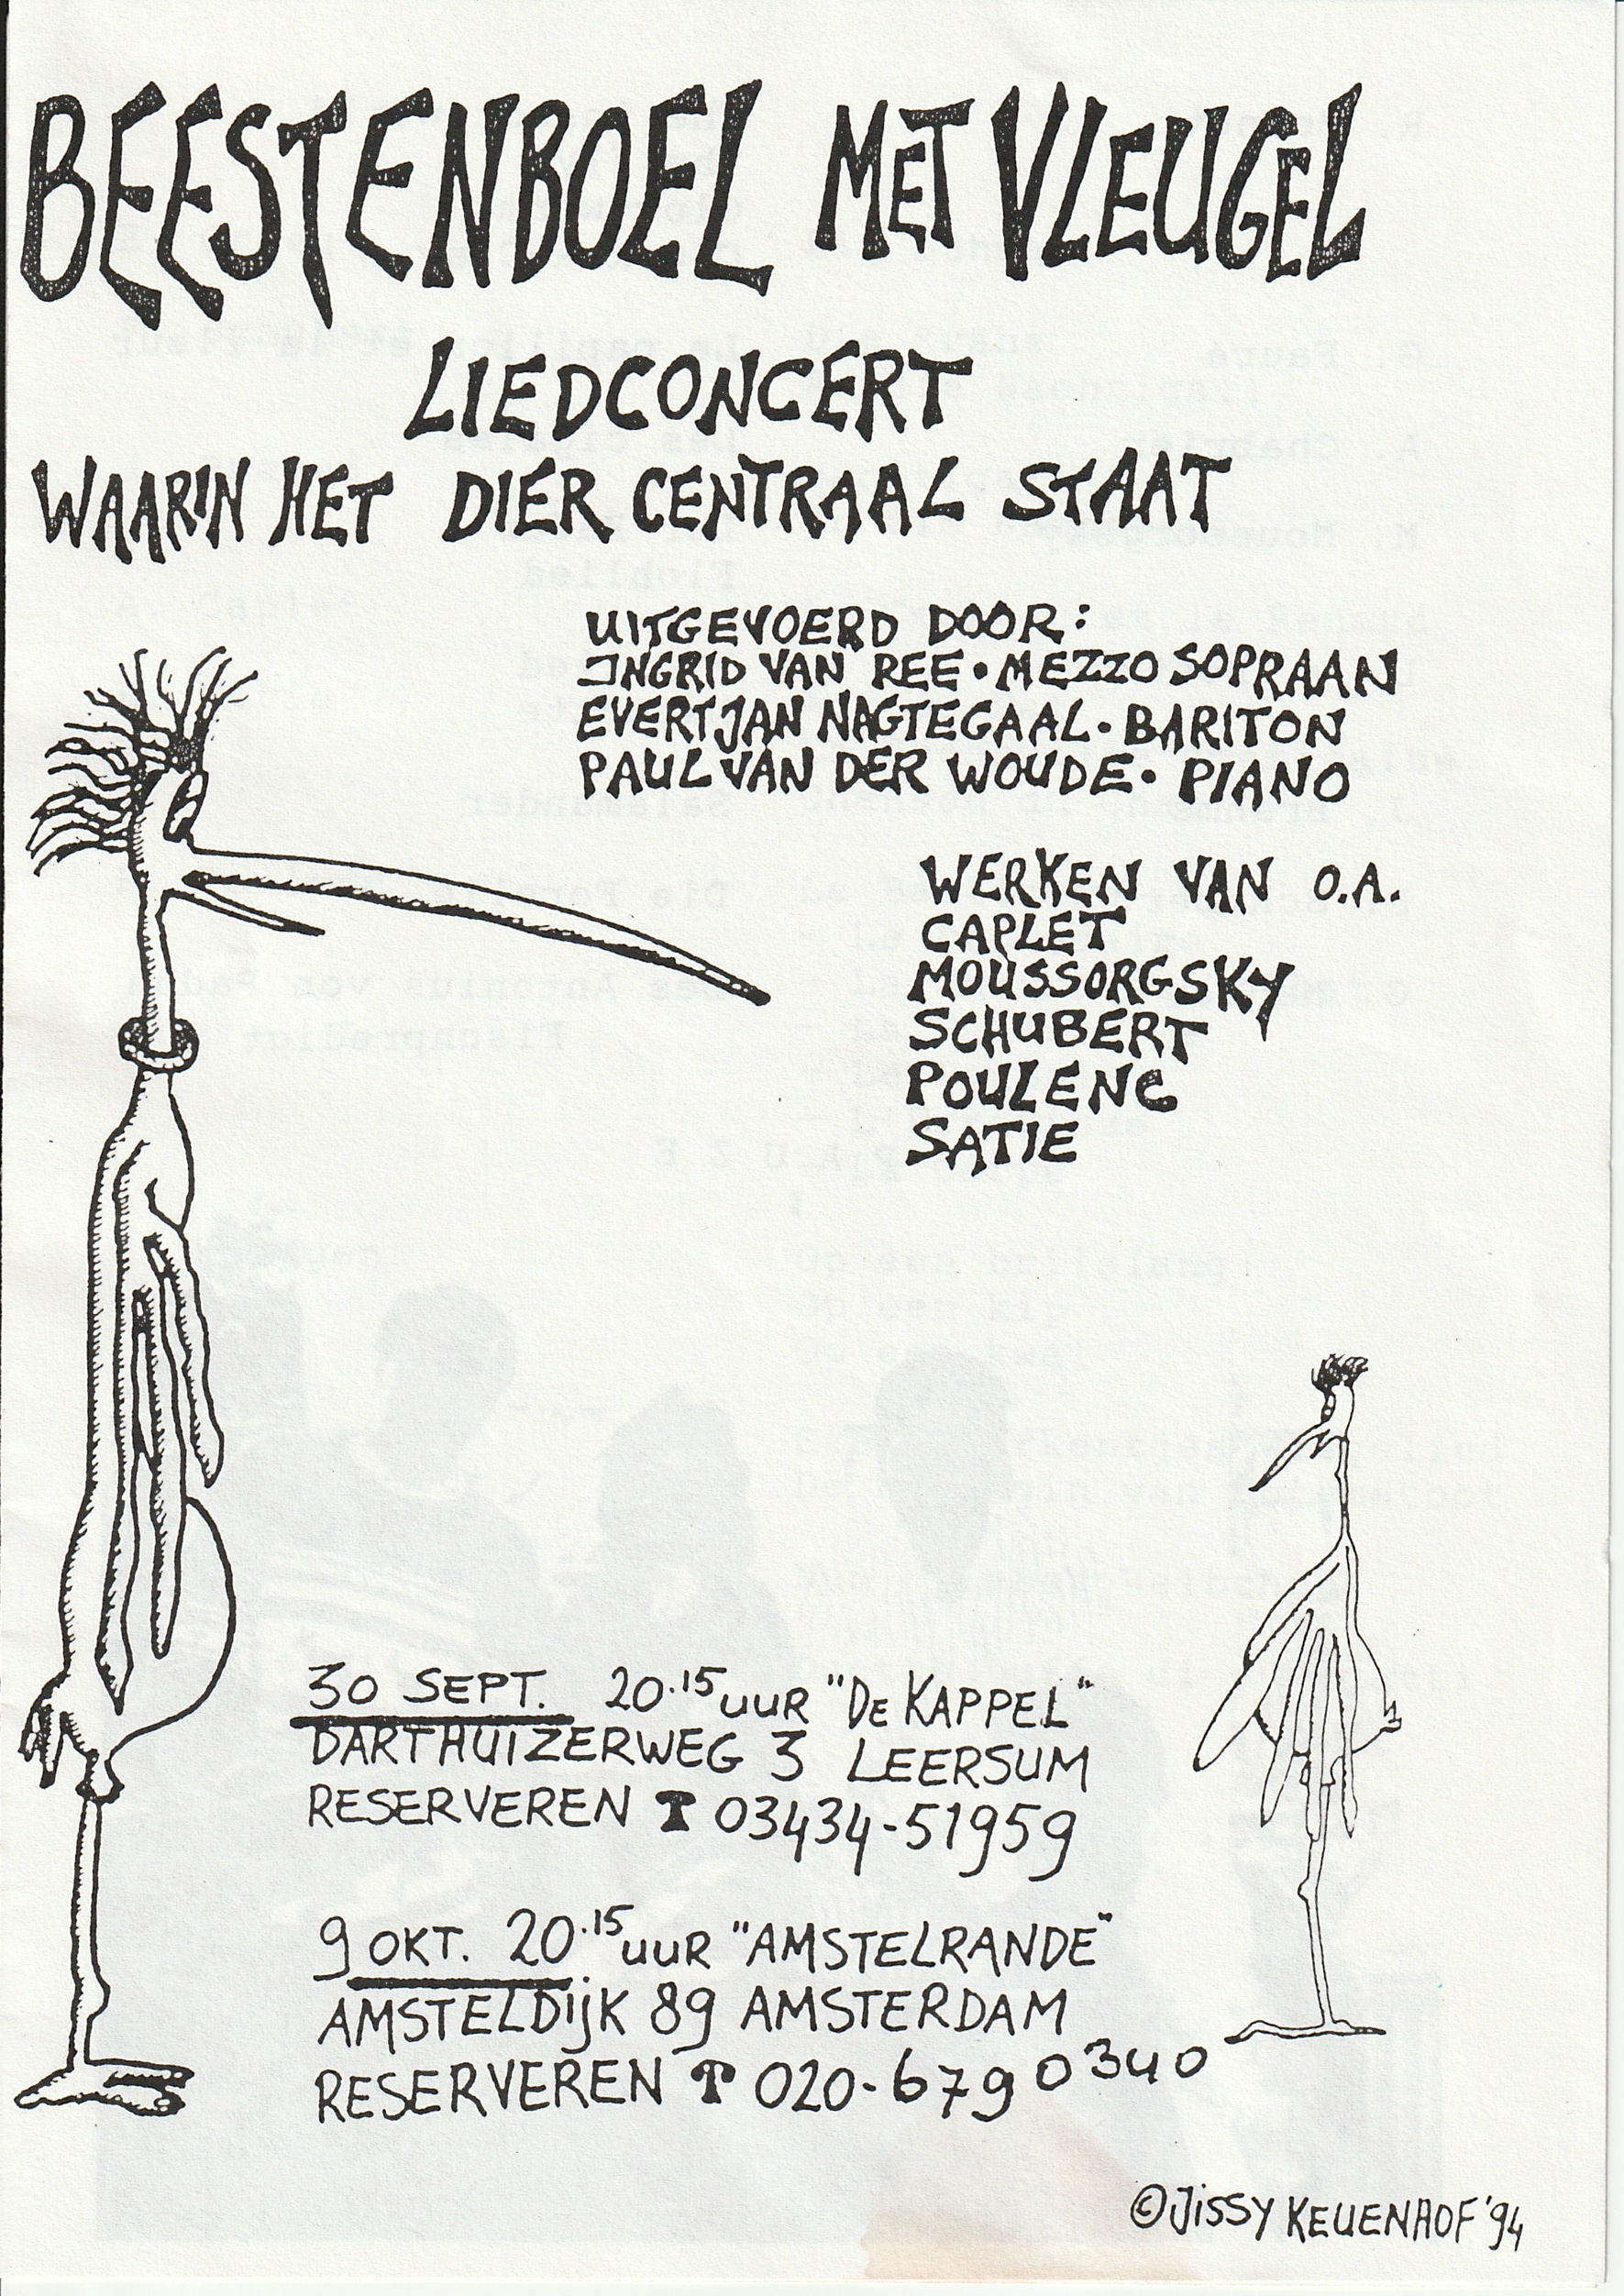 BEESTENBOEL MET VLEUGEL
LIEDCONCERT
WAARIN HET DIER CENTRAAL STAAT
UITGEVOERD DOOR:
INGRID VAN REE • MEZZO SOPRAAN
EVERTJAN NAGTEGAAL • BARITON
PAUL VAN DER WOUDE • PIANO
WERKEN VAN O.A.
CAPLET
MOUSSORGSKY
SCHUBERT
POULENC
SATIE
30 SEPT. 20.15 UUR "DE KAPPEL"
DARTHUIZERWEG 3 LEERSUM
RESERVEREN ☎ 03434-51959
9 OKT. 20.15 UUR "AMSTELRANDE"
AMSTELDIJK 89 AMSTERDAM
RESERVEREN ☎ 020-6790340
© JISSY KEUENHOF '94